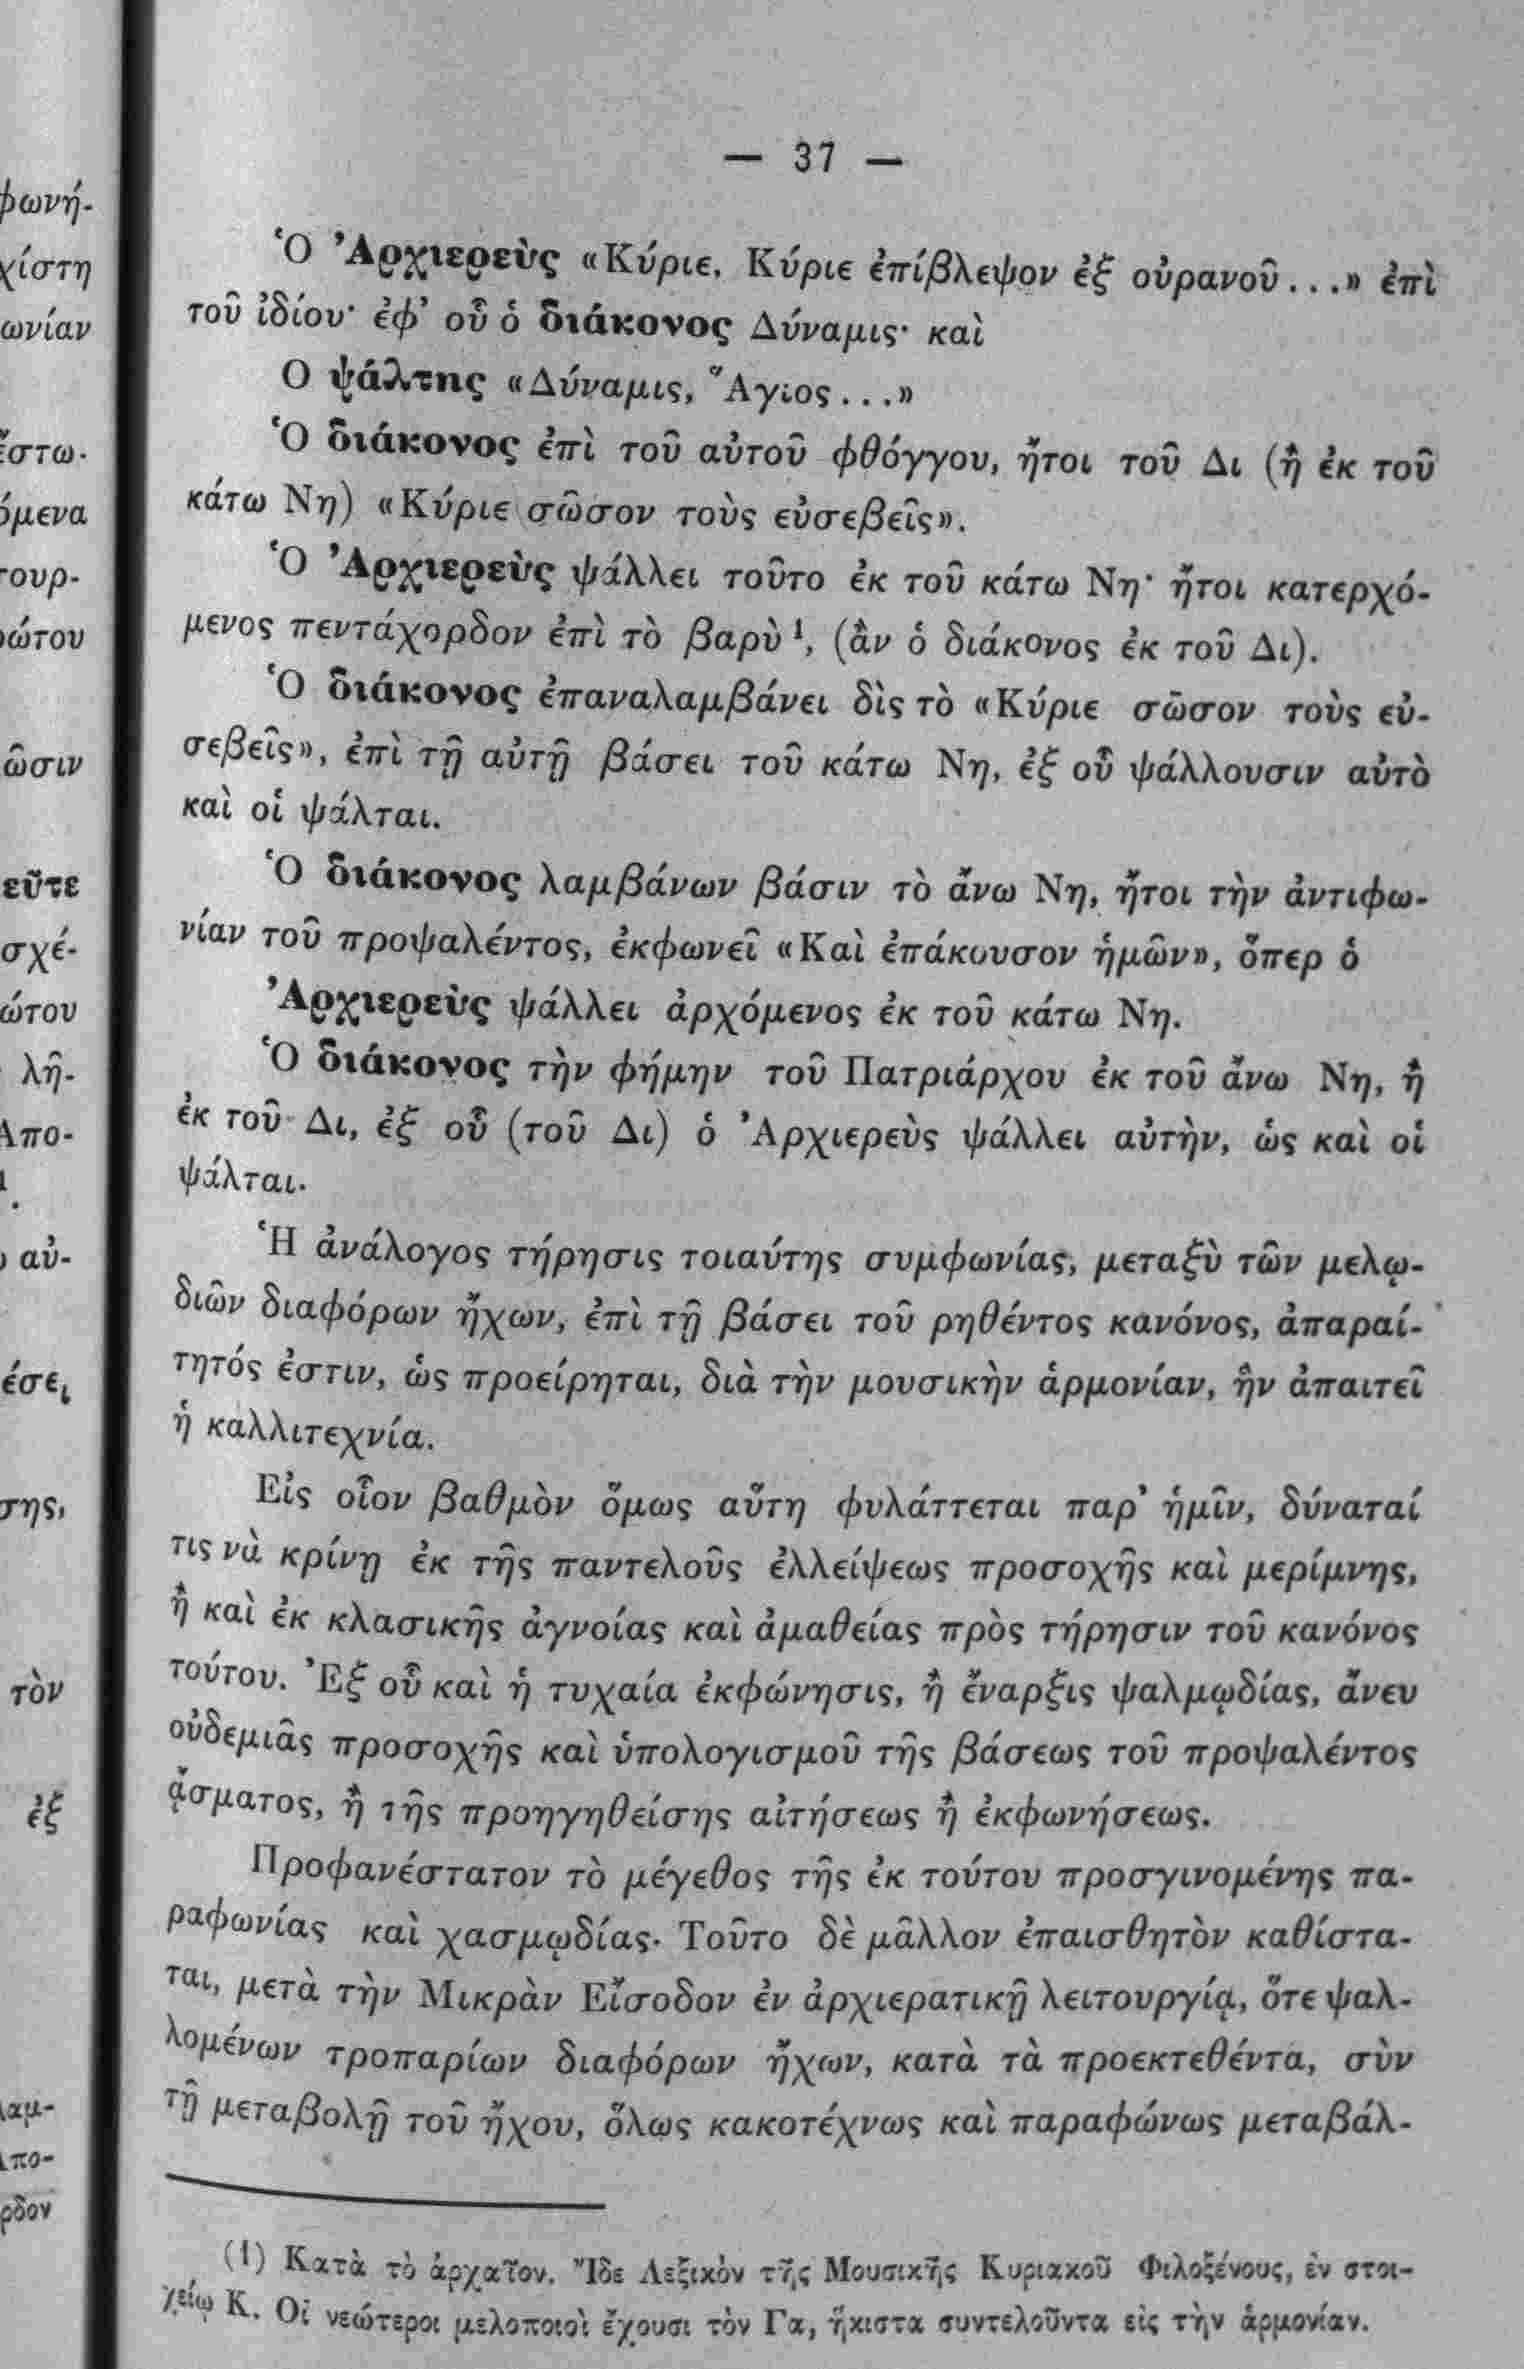 — 37 —
Ὁ Ἀρχιερεὺς «Κύριε, Κύριε ἐπίβλεψον ἐξ οὐρανοῦ...» ἐπὶ
τοῦ ἰδίου· ἐφ’ οὗ ὁ διάκονος Δύναμις· καὶ
Ο ψάλτης «Δύναμις, Ἅγιος...»
Ὁ διάκονος ἐπὶ τοῦ αὐτοῦ φθόγγου, ἤτοι τοῦ Δι (ἢ ἐκ τοῦ
κάτω Νη) «Κύριε σῶσον τοὺς εὐσεβεῖς».
Ὁ Ἀρχιερεὺς ψάλλει τοῦτο ἐκ τοῦ κάτω Νη· ἤτοι κατερχό-
μενος πεντάχορδον ἐπὶ τὸ βαρὺ ¹, (ἂν ὁ διάκονος ἐκ τοῦ Δι).
Ὁ διάκονος ἐπαναλαμβάνει δὶς τὸ «Κύριε σῶσον τοὺς εὐ-
σεβεῖς», ἐπὶ τῇ αὐτῇ βάσει τοῦ κάτω Νη, ἐξ οὗ ψάλλουσιν αὐτὸ
καὶ οἱ ψάλται.
Ὁ διάκονος λαμβάνων βάσιν τὸ ἄνω Νη, ἤτοι τὴν ἀντιφω-
νίαν τοῦ προψαλέντος, ἐκφωνεῖ «Καὶ ἐπάκουσον ἡμῶν», ὅπερ ὁ
Ἀρχιερεὺς ψάλλει ἀρχόμενος ἐκ τοῦ κάτω Νη.
Ὁ διάκονος τὴν φήμην τοῦ Πατριάρχου ἐκ τοῦ ἄνω Νη, ἢ
ἐκ τοῦ Δι, ἐξ οὗ (τοῦ Δι) ὁ Ἀρχιερεὺς ψάλλει αὐτὴν, ὡς καὶ οἱ
ψάλται.
Ἡ ἀνάλογος τήρησις τοιαύτης συμφωνίας, μεταξὺ τῶν μελῳ-
διῶν διαφόρων ἤχων, ἐπὶ τῇ βάσει τοῦ ρηθέντος κανόνος, ἀπαραί-
τητός ἐστιν, ὡς προείρηται, διὰ τὴν μουσικὴν ἁρμονίαν, ἣν ἀπαιτεῖ
ἡ καλλιτεχνία.
Εἰς οἷον βαθμὸν ὅμως αὕτη φυλάττεται παρ’ ἡμῖν, δύναταί
τις νὰ κρίνῃ ἐκ τῆς παντελοῦς ἐλλείψεως προσοχῆς καὶ μερίμνης,
ἢ καὶ ἐκ κλασικῆς ἀγνοίας καὶ ἀμαθείας πρὸς τήρησιν τοῦ κανόνος
τούτου. Ἐξ οὗ καὶ ἡ τυχαία ἐκφώνησις, ἢ ἔναρξις ψαλμῳδίας, ἄνευ
οὐδεμιᾶς προσοχῆς καὶ ὑπολογισμοῦ τῆς βάσεως τοῦ προψαλέντος
ᾄσματος, ἢ τῆς προηγηθείσης αἰτήσεως ἢ ἐκφωνήσεως.
Προφανέστατον τὸ μέγεθος τῆς ἐκ τούτου προσγινομένης πα-
ραφωνίας καὶ χασμῳδίας. Τοῦτο δὲ μᾶλλον ἐπαισθητὸν καθίστα-
ται, μετὰ τὴν Μικρὰν Εἴσοδον ἐν ἀρχιερατικῇ λειτουργίᾳ, ὅτε ψαλ-
λομένων τροπαρίων διαφόρων ἤχων, κατὰ τὰ προεκτεθέντα, σὺν
τῇ μεταβολῇ τοῦ ἤχου, ὅλως κακοτέχνως καὶ παραφώνως μεταβάλ-
(1) Κατὰ τὸ ἀρχαῖον. Ἴδε Λεξικὸν τῆς Μουσικῆς Κυριακοῦ Φιλοξένους, ἐν στοι-
χείῳ Κ. Οἱ νεώτεροι μελοποιοὶ ἔχουσι τὸν Γα, ἥκιστα συντελοῦντα εἰς τὴν ἁρμονίαν.